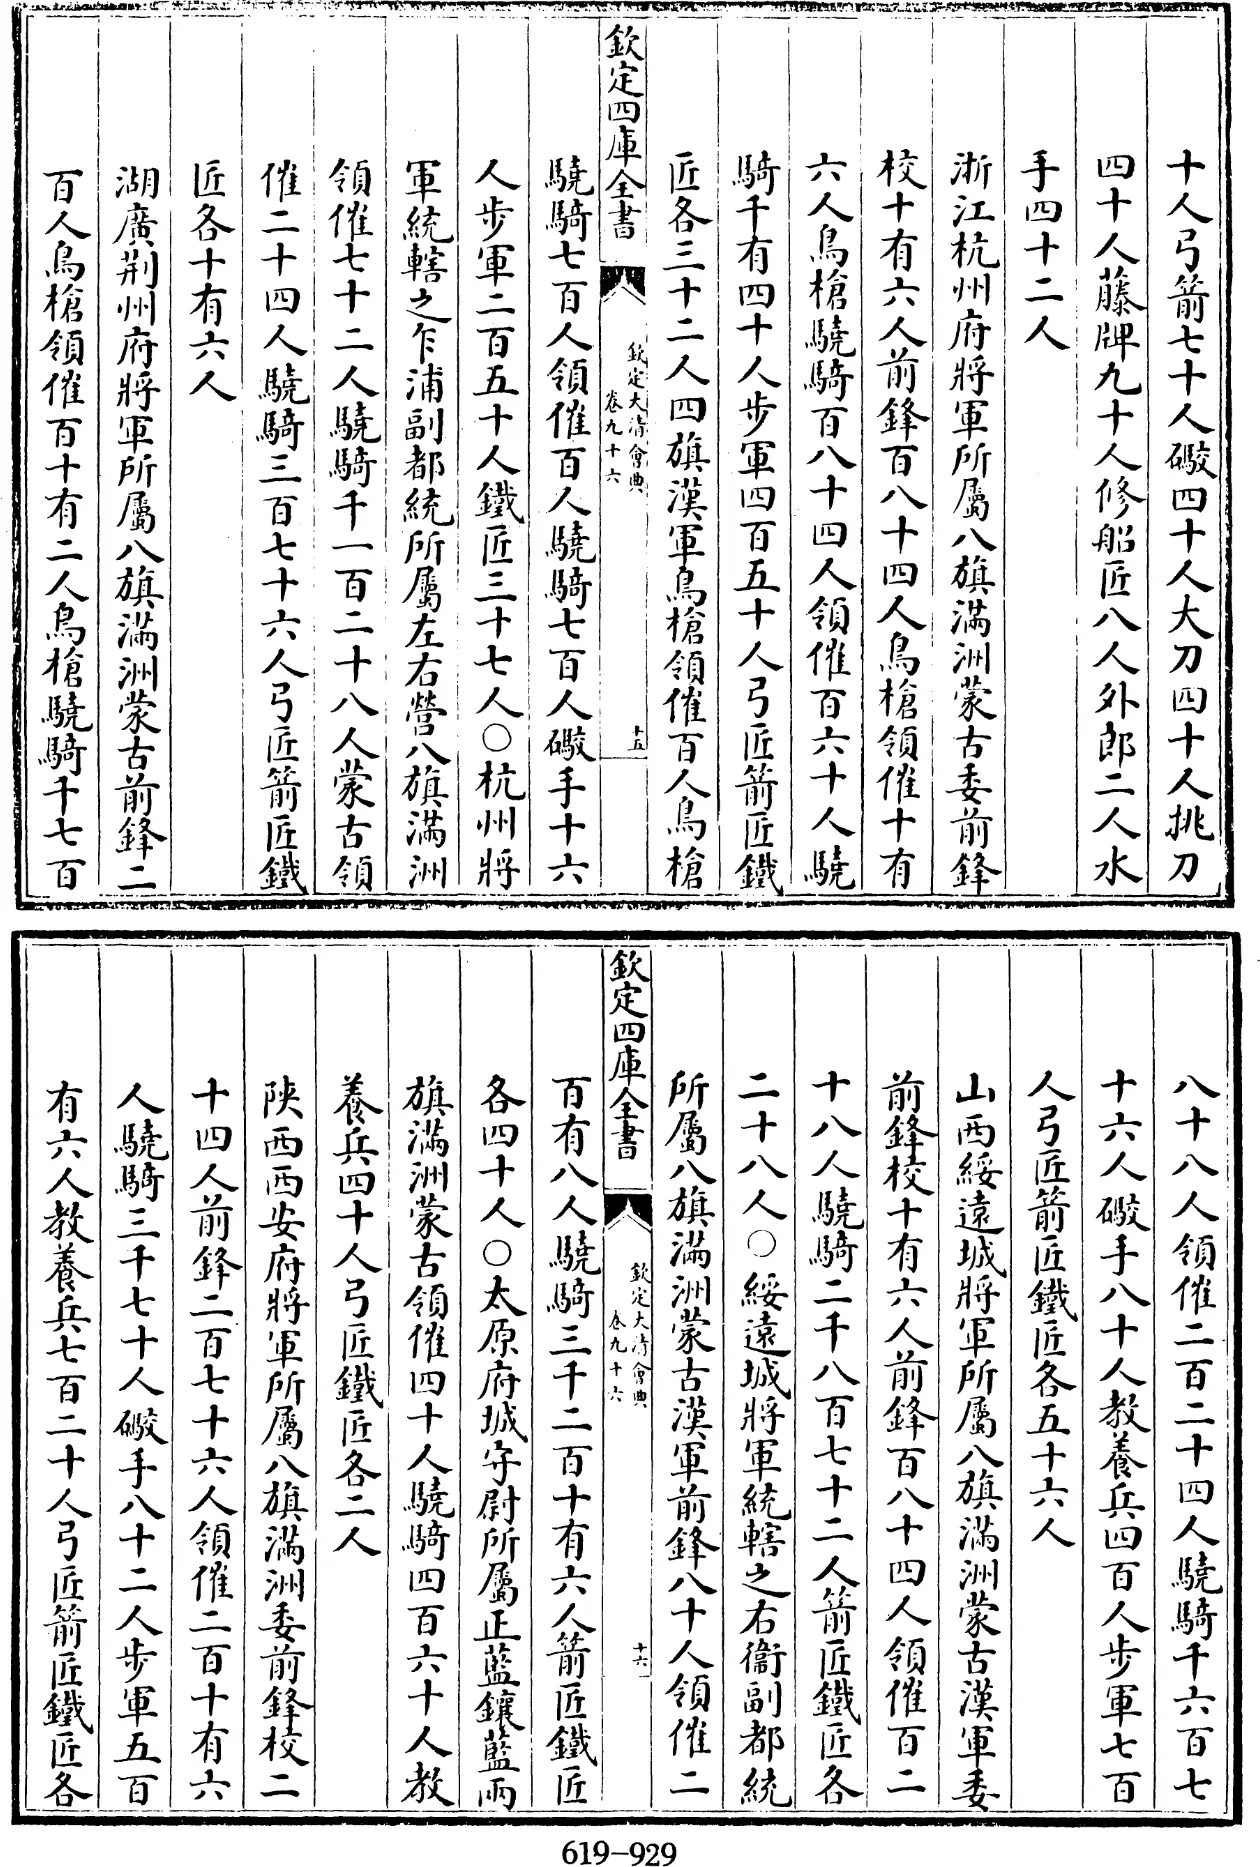 十人弓箭七十人礮四十人大刀四十人挑刀
四十人藤牌九十人修船匠八人外郎二人水
手四十二人
浙江杭州府將軍所屬八旗滿洲蒙古委前鋒
校十有六人前鋒百八十四人鳥槍領催十有
六人鳥槍驍騎百八十四人領催百六十人驍
騎千有四十人步軍四百五十人弓匠箭匠鐵
匠各三十二人四旗漢軍鳥槍領催百人鳥槍
欽定四庫全書
欽定大清會典
卷九十六
十五
驍騎七百人領催百人驍騎七百人礮手十六
人步軍二百五十人鐵匠三十七人○杭州將
軍統轄之乍浦副都統所屬左右營八旗滿洲
領催七十二人驍騎千一百二十八人蒙古領
催二十四人驍騎三百七十六人弓匠箭匠鐵
匠各十有六人
湖廣荆州府將軍所屬八旗滿洲蒙古前鋒二
百人鳥槍領催百十有二人鳥槍驍騎千七百
八十八人領催二百二十四人驍騎千六百七
十六人礮手八十人教養兵四百人步軍七百
人弓匠箭匠鐵匠各五十六人
山西綏遠城將軍所屬八旗滿洲蒙古漢軍委
前鋒校十有六人前鋒百八十四人領催百二
十八人驍騎二千八百七十二人箭匠鐵匠各
二十八人○綏遠城將軍統轄之右衞副都統
所屬八旗滿洲蒙古漢軍前鋒八十人領催二
欽定四庫全書
欽定大清會典
卷九十六
十六
百有八人驍騎三千二百十有六人箭匠鐵匠
各四十人○太原府城守尉所屬正藍鑲藍兩
旗滿洲蒙古領催四十人驍騎四百六十人教
養兵四十人弓匠鐵匠各二人
陜西西安府將軍所屬八旗滿洲委前鋒校二
十四人前鋒二百七十六人領催二百十有六
人驍騎三千七十人礮手八十二人步軍五百
有六人教養兵七百二十人弓匠箭匠鐵匠各
619-929